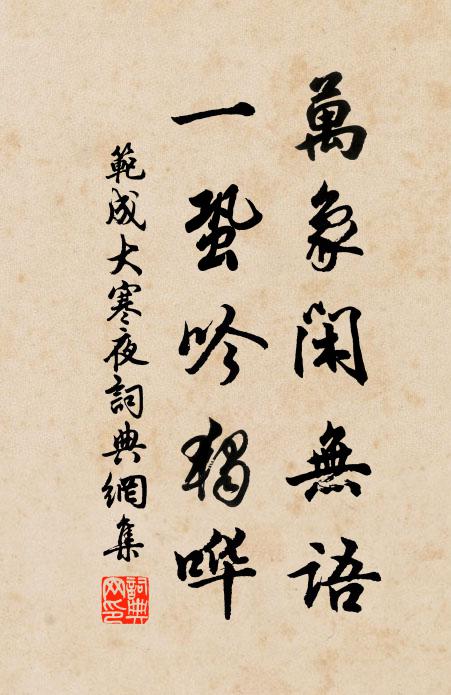 萬象闲無語
一蛩吟獨哗
範成大寒夜詞典網集
詞典网印